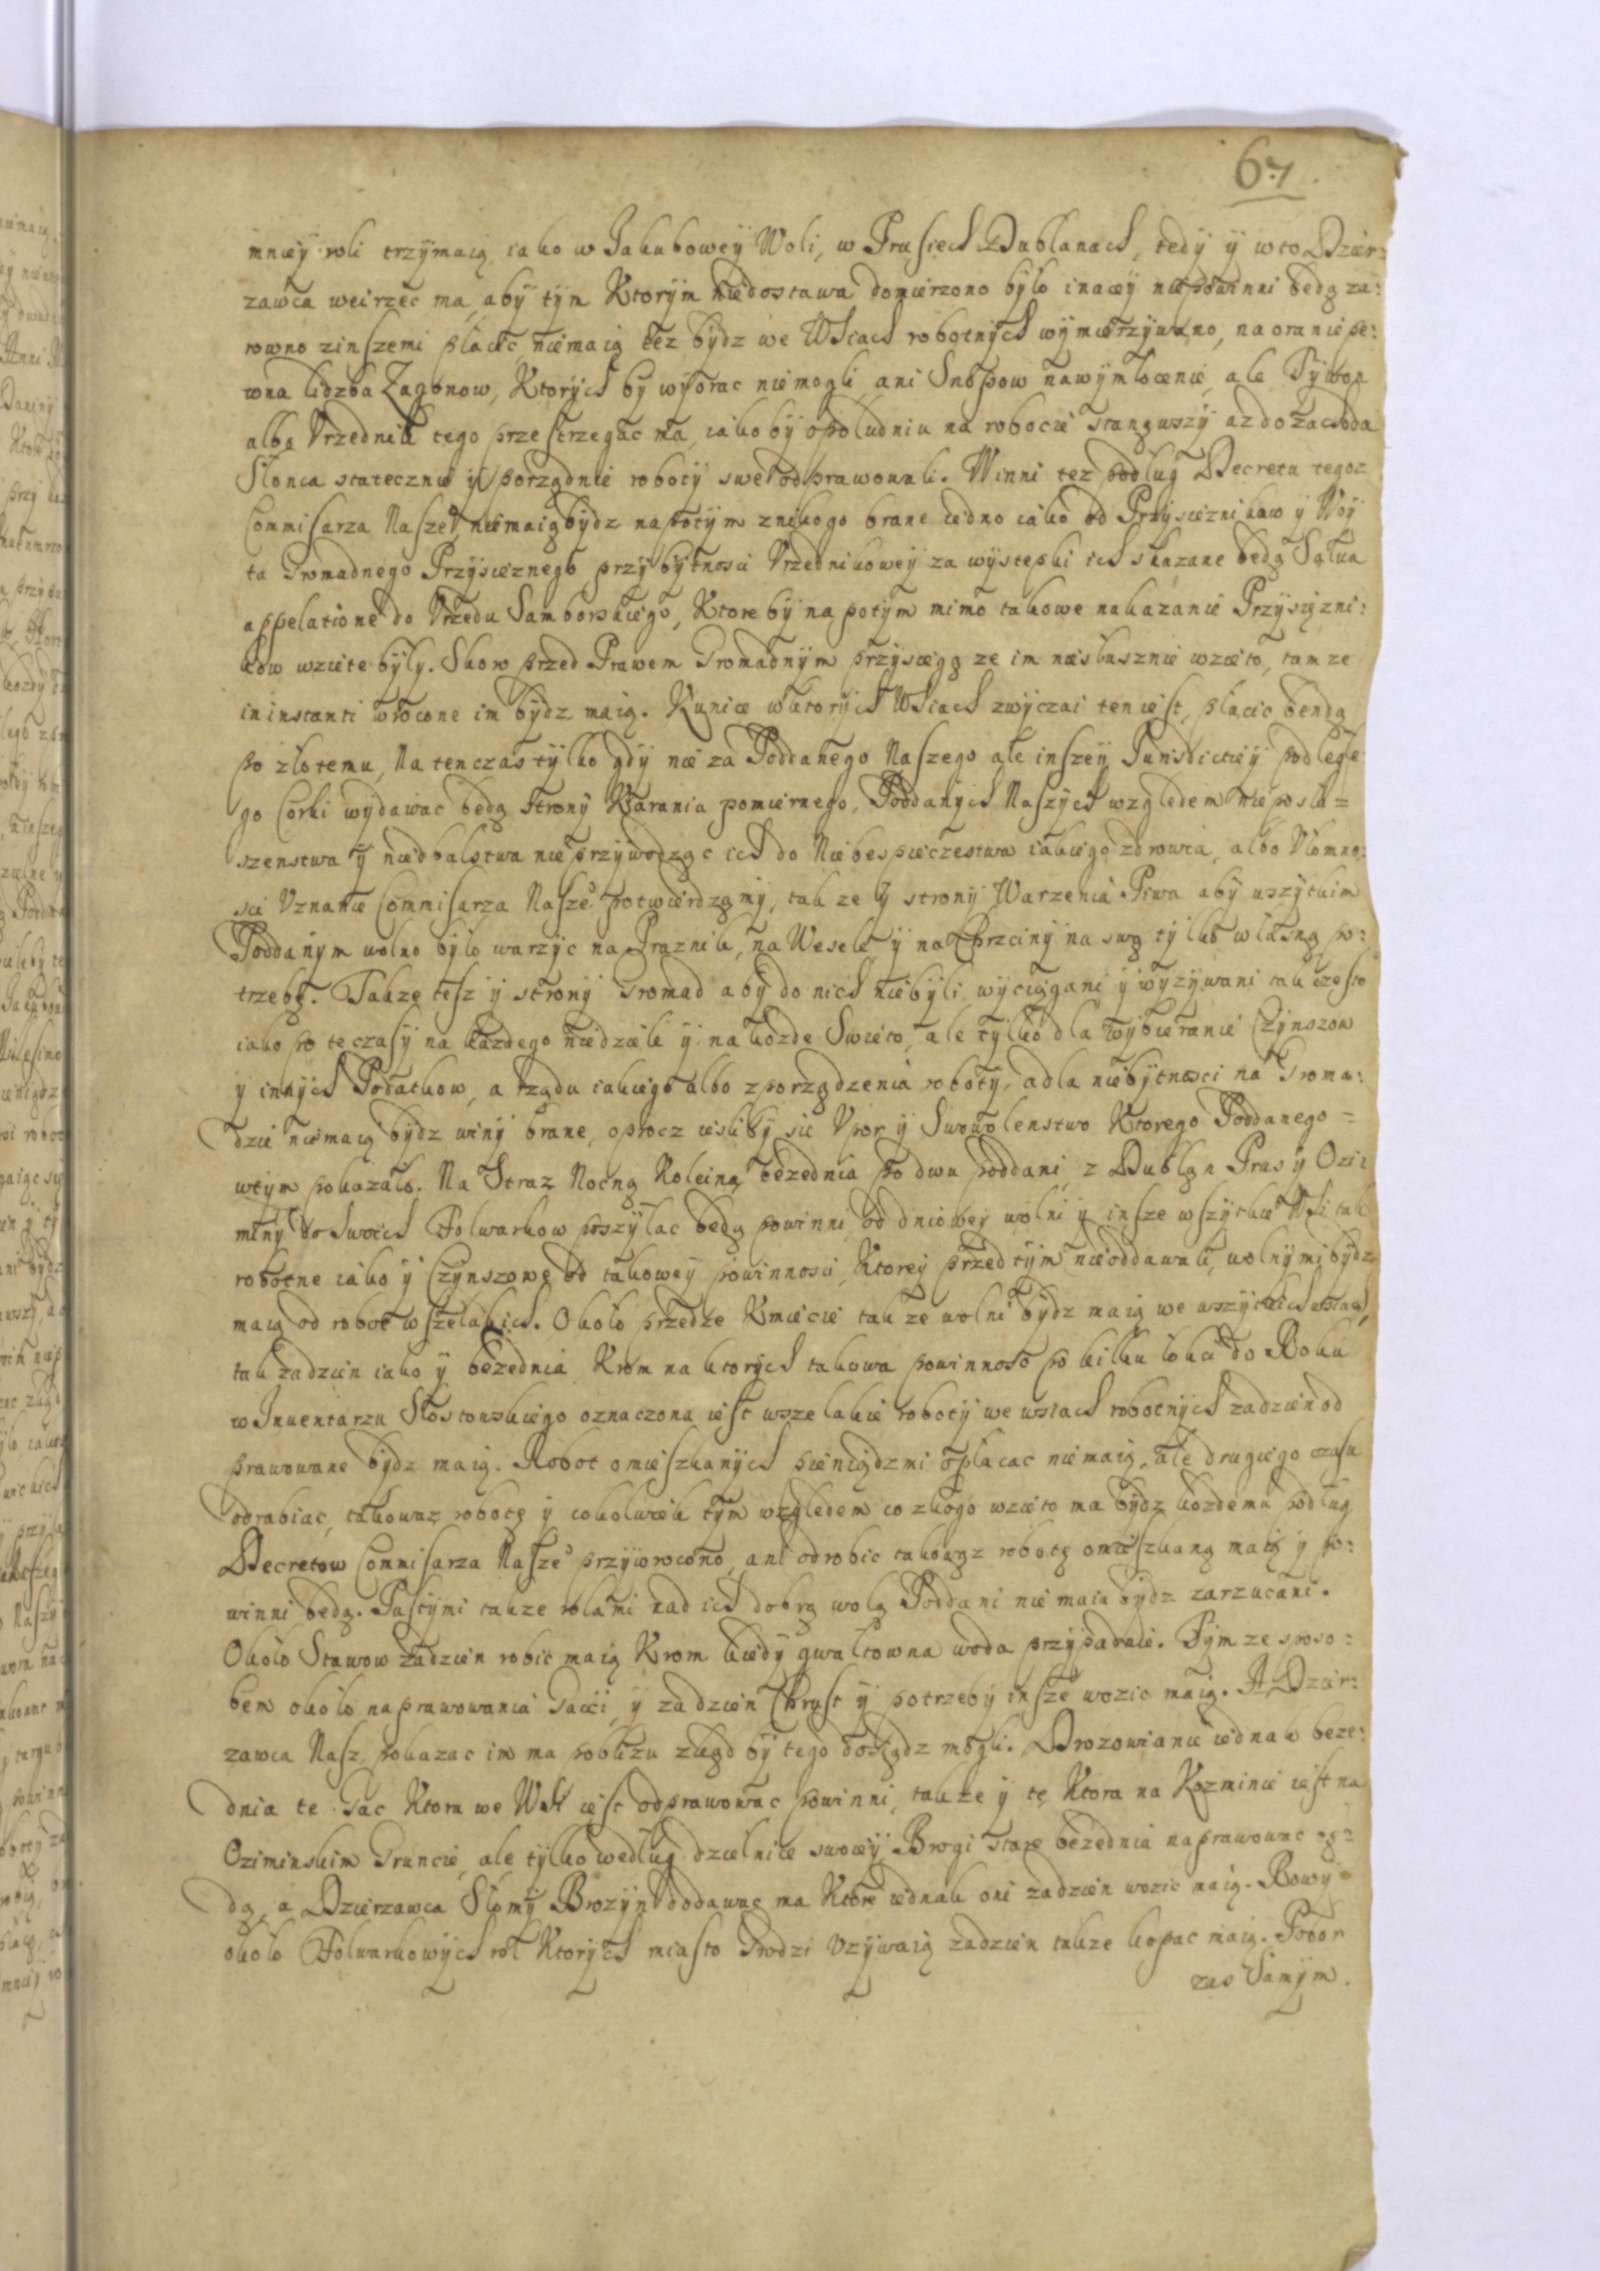 67
mniey roli trzymaią iako w Jakubowey Woli, w Prusiech Dublanach, tedy y w to Dzier:
zawca weirzec ma, aby tym Ktorym niedostawa domierzono było inaczey niepowinni będą za:
rowno zinszemi płacic, niemaią tez bydz we Wsiach robotnych wymierzywano, na oranie pe:
wna lidzba Zagonow, Ktorych by wyorac niemogli, ani Snopow na wymłocenie, ale Tywon
albo Vrzednik tego przestrzegac ma, iakoby opołudniu na robocie stanąwszy az do zachoda
Słonca statecznie y porządnie roboty swe odprawowali. Winni tez podług Decretu tegoz
Commisarza Nasze° niemaią bydz napotym znikogo brane iedno iako od Przysieznikow y Woy
ta Gromadnego Przysieznego, przy bytnosci Vrzednikowey za wystepki ich skazane będą Salua
appelatione do Vrzedu Samborskiego, Ktore by napotym mimo takowe nakazanie Przysięzni:
kow wziete były. Skoro przed Prawem Gromadnym przysięgą ze im niesłusznie wzieto, tamze
in instanti wrocone im bydz maią. Kunice w ktorych Wsiach zwyczai ten iest, płacic bendą
po złotemu, Na tenczas tylko gdy nie za Poddanego Naszego ale inszey Jurisdictiey podległe
go Corki wydawac będą strony Karania pomiernego, Poddanych Naszych względem nieposłu=
szenstwa y niedbalstwa nie przywodząc ich do Niebespieczestwa iakiego zdrowia, albo Vłomno:
sci Vznanie Commisarza Nasze° potwierdzamy, tak ze y strony Warzenia Piwa aby wszytkim
Poddanym wolno było warzyc na Praznik, na Wesele y na Chrzciny na swą tylko własną po:
trzebę. Takze tesz y strony Gromad aby do nich niebyli wyciągani y wyzywani tak często
iako po te czasy na kazdego niedziele y na kozde Swieto, ale tylko dla wybieranie Czynszow
y innych Podatkow, a rządu iakiego albo zporządzenia roboty, a dla niebytnosci na Groma:
dzie niemaią bydz winy brane, oprocz iesliby sie Vpor y Swowolenstwo Ktorego Poddanego=
wtym pokazało. Na Straz Nocną Koleiną bezednia po dwu poddani, z Dublan Prus y Ozi:
miny do swoich Folwarkow poszylac będą powinni, od dniowey wolni y insze wszytkie Wsi tak
robotne iako y Czynszowe od takowey powinnosci, Ktorey przed tym nieoddawali, wolnymi bydz
maią od robot wszelakich. Około przedze Kmiecie tak ze wolni bydz maią we wszytkich wsiach,
tak zadzien iako y bezednia Krom na ktorych takowa powinnosc po kilku łokci do Roku
w Inuentarzu Słostowskiego oznaczona iest wszelakie roboty we wsiach robotnych zadzien od
prawowane bydz maią. Robot omieszkanych pieniądzmi opłacac niemaią, ale drugiego czasu
odrabiac, takowąz robotę y cokolwiek tym względem co zkogo wzieto ma bydz kozdemu podług
Decretow Commisarza Nasze° przywrocono, ani odrobic takowąz robotę omieszkaną maią y po:
winni będą. Pustymi takze rolami nad ich dobrą wolą Poddani nie maia bydz zarzucani.
Około Stawow zadzien robic maią Krom kiedy gwałtowna woda przypadnie. Tym ze sposo:
bem około naprawowania Gaci, y zadzien Chrust y potrzeby insze wozic maią. A Dzier:
zawca Nasz pokazac im ma poblizu zkąd by tego dosiądz mogli. Drozowianie iednak beze:
dnia te Gac Ktora we Wsi iest odprawowac powinni, takze y tę Ktora na Kozminie iest na
Oziminskim Gruncie, ale tylko według dzielnice swoiey Brogi stare bezednia naprawowac Bę=
dą, a Dzierzawca Słomy Brozyn dodawac ma Ktore iednak oni zadzien wozic maią. Rowy
około Folwarkowych rol Ktorych miasto Grodzi Vzywaią zadzien takze kopac maią. Pobor
zas Samym.